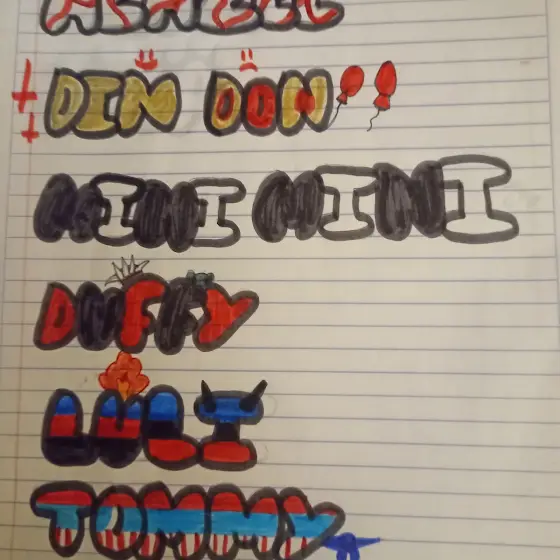 DIN DON
MINI MINI
DUFFY
LULI
TOMMY